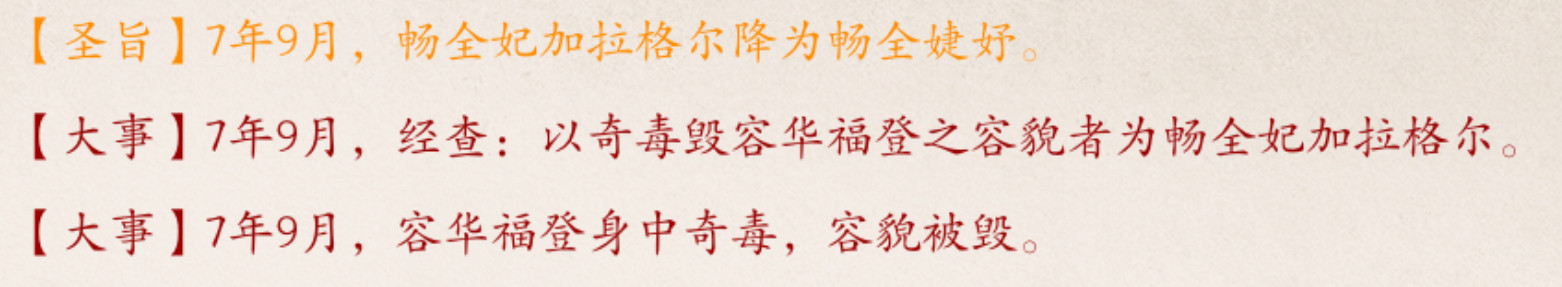 【圣旨】7年9月，畅全妃加拉格尔降为畅全婕妤。
【大事】7年9月，经查：以奇毒毁容华福登之容貌者为畅全妃加拉格尔。
【大事】7年9月，容华福登身中奇毒，容貌被毁。